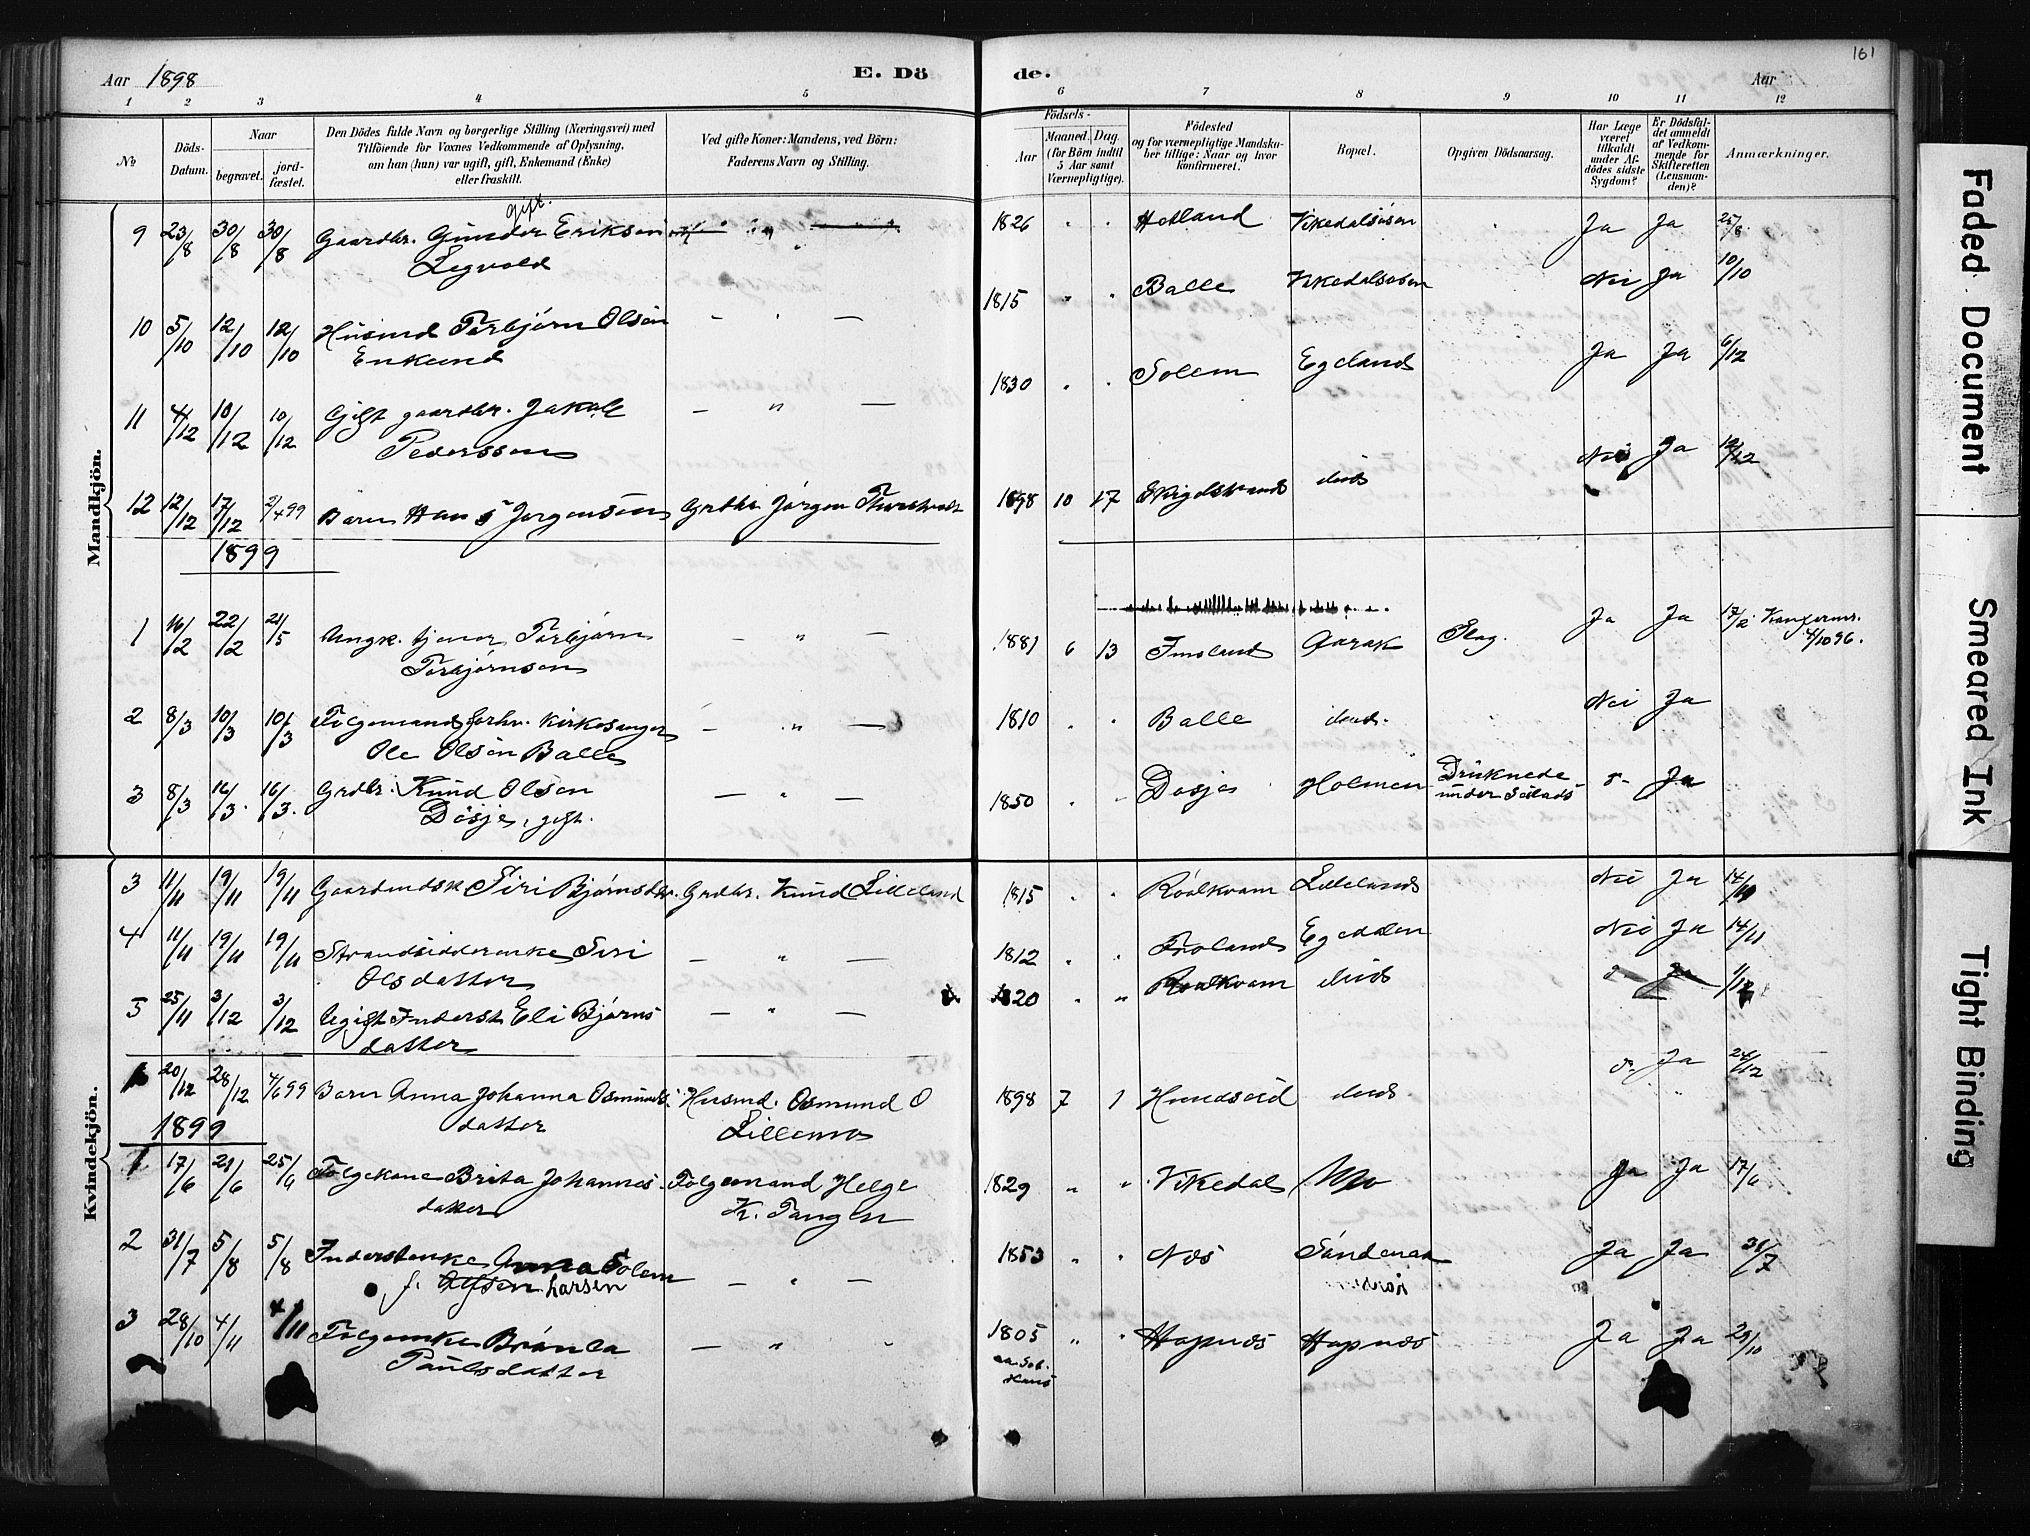 Aar 1898
E. Dö
de.
161
Aar
1 2 3 4 5 6 7 8 9 10 11 12
No
Döds-
Datum.
Naar
begravet.
jord-
fæstet.
Den Dödes fulde Navn og borgerlige Stilling (Næringsvei) med
Tilföiende for Voxnes Vedkommende af Oplysning,
om han (hun) var ugift, gift, Enkemand (Enke)
eller fraskilt.
Ved gifte Koner: Mandens, ved Börn:
Faderens Navn og Stilling.
Födsels-
Aar
Maaned.
Dag.
(for Börn indtil
5 Aar samt
Værnepligtige).
Födested
og for værnepligtige Mandska-
ber tillige: Naar og hvor
konfirmeret.
Bopæl.
Opgiven Dödsaarsag.
Har Læge
været
tilkaldt
under Af-
dödes sidste
Sygdom?
Er Dödsfal-
det anmeldt
af Vedkom-
mende for
Skifteretten
(Lensman-
den)?
Anmærkninger.
Mandkjön.
9 23/8 30/8 30/8 Gaardbr. Gunder Eriksen gift. 1826 Hetland Vikedalsosen Ja Ja 25/8
Legvold
10 5/10 12/10 12/10 Husmd Torbjørn Olsen — " — 1815 Balle Vikedalsosen Nei Ja 10/10
Enkemd
11 4/12 10/12 10/12 Gift gaardbr. Jakob — " — 1830 Solem Egeland Ja Ja 6/12
Pederssen
12 12/12 17/12 2/4 99 Barn Hans Jørgensen Grdbr Jørgen 1898 10 17 Nei Ja
1899
1 16/2 22/2 21/5 Ungk. tjener Torbjørn — " — 1881 6 13 Imsland Slag. Ja Ja 17/2 Konfermr.
Torbjørnsen 4/10 96.
2 8/3 10/3 10/3 Folgemand forhv. Kirkesanger — " — 1810 Balle Nei Ja
Ole Olsen Balle
3 8/3 16/3. 16/3. Grdbr. Knud Olsen — " — 1850 Døsje Holmen Druknede Ja
Døsje, gift. under
Kvindekjön.
3 11/11 19/11 19/11 Siri Bjørnsdtr. Grdbr. Knud Lilleland 1815 Røalkvam Lilleland Nei Ja 14/11
4 11/11 19/11 19/11 Strandsidderenke Siri — " — 1812 Egedalen Nei Ja 14/11
Olsdatter
5 25/11 3/12 3/12 Ugift Inderst Eli Bjørns — " — 1820 Røalkvam Ja 1/12
datter
20/12 28/12 4/6 99 Barn Anna Johanna Osmunds Husmd. Osmund O 1898 7 1 Hundseid Ja 24/12
datter
1899
1 17/6 21/6 25/6 Folgekone Brita Johannes- Folgemand Helge 1829 Vikedal Mo Ja Ja 17/6
datter K. Tangen
2 31/7 5/8 5/8 Inderstenke Anna Solem — " — 1853 Nes Søndenaa Ja Ja 31/7
f. Larsen
3 28/10 4/11 4/11 Folgenke Brønla — " 1805 Hapnes Hapnes Ja Ja 29/10
Paulsdatter
Faded Document
Smeared Ink
Tight Binding